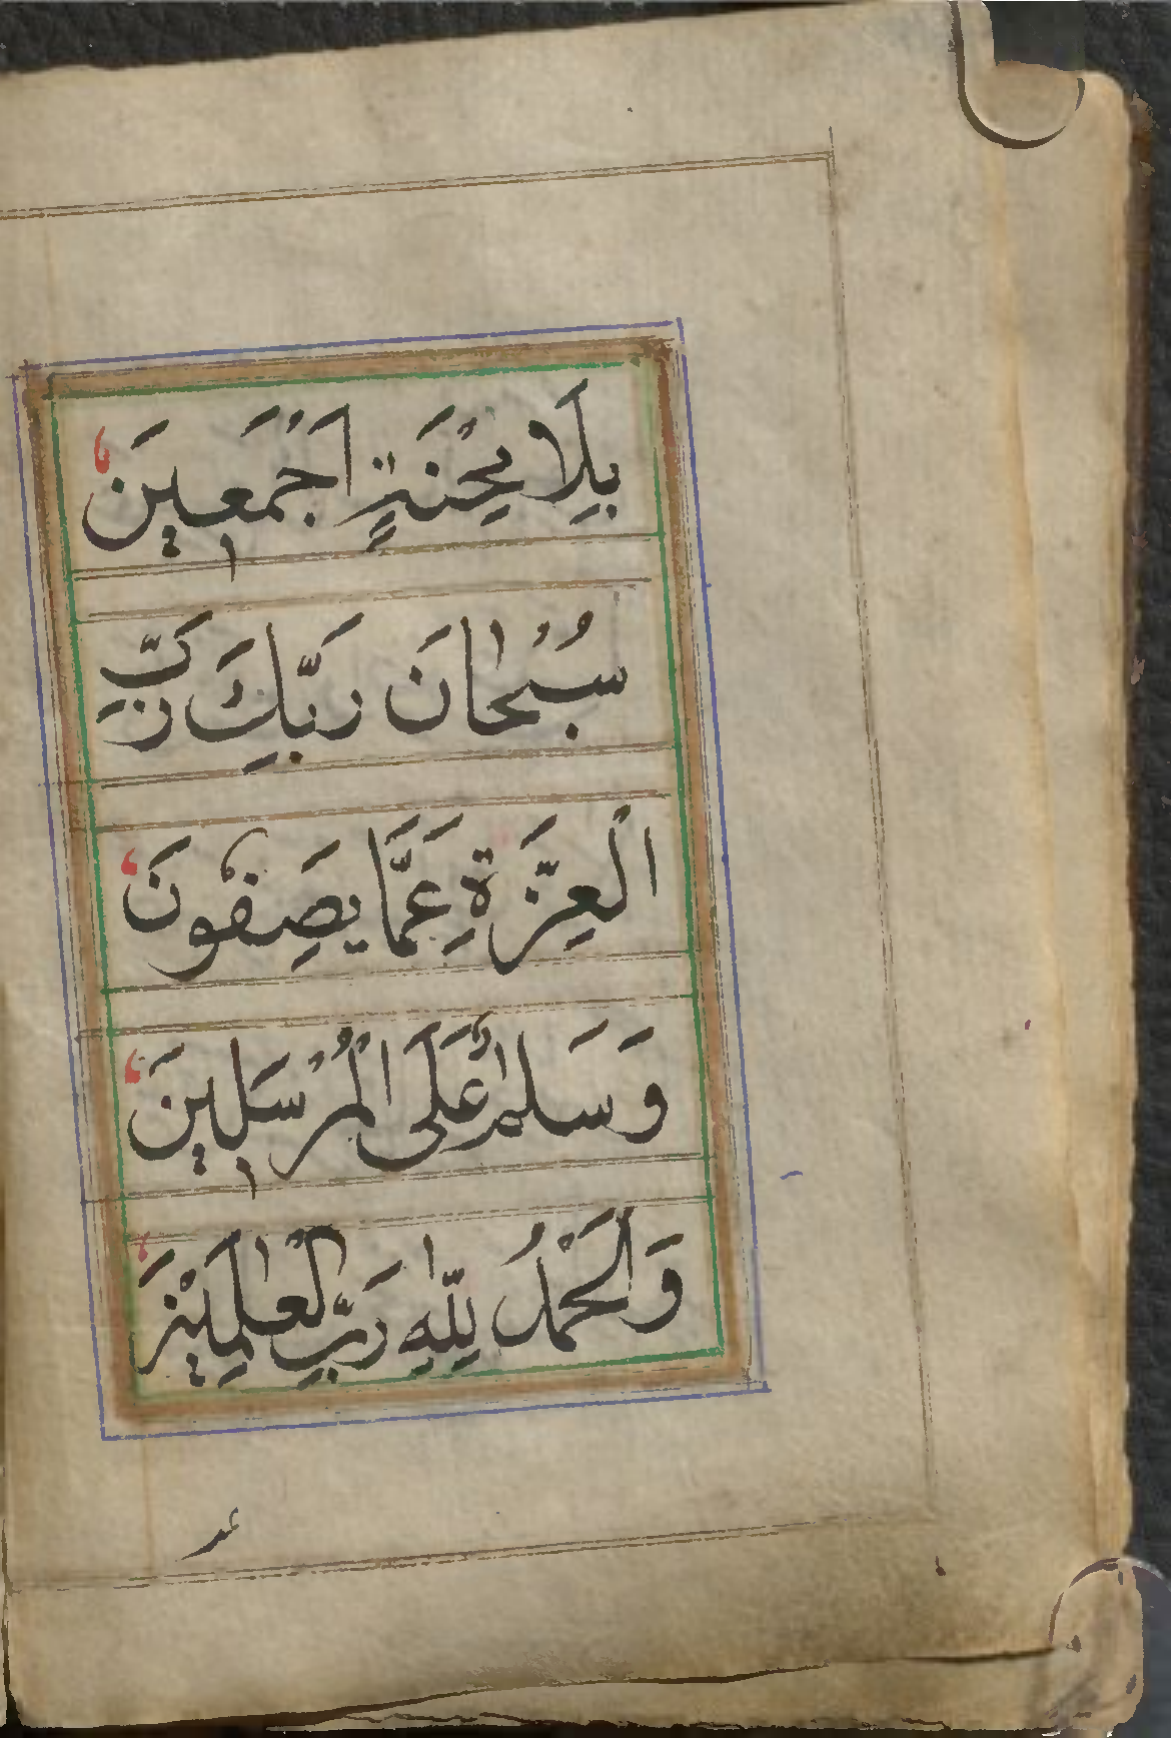 بِلَا مِحْنَةٍ اَجْمَعِينَ
سُبْحٰانَ رَبِّكَ رَبِّ
الْعِزَّةِ عَمَّا يَصِفُونَ
وَسَلٰمٌ عَلَى الْمُرْسَلِينَ
وَالْحَمْدُ لِلّٰهِ رَبِّ الْعٰالَمِيْنَ